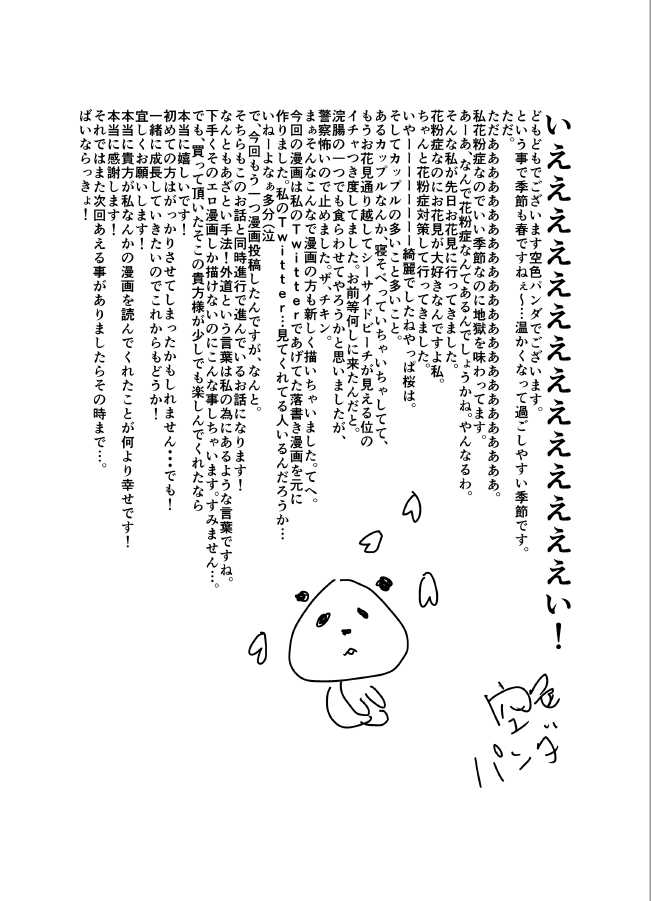 いえええええええええええええええい！
どもどもでございます空色パンダでございます。
という事で季節も春ですねぇ～…温かくなって過ごしやすい季節です。
ただ。
ただああああああああああああああああああああああああ。
私花粉症なのでいい季節なのに地獄を味わってます。
あーあ、なんで花粉症なんてあるんでしょうかね。やんなるわ。
そんな私が先日お花見に行ってきました。
花粉症なのにお花見が大好きなんですよ私。
ちゃんと花粉症対策して行ってきました。
いやーーーーーーー綺麗でしたねやっぱ桜は。
そしてカップルの多いこと多いこと。
あるカップルなんか、寝そべっていちゃいちゃしてて、
もうお花見通り越してシーサイドビーチが見える位の
イチャつき度してました。お前等何しに来たんだと。
浣腸の一つでも食らわせてやろうかと思いましたが、
警察怖いので止めました。ザ、チキン。
まぁそんなこんなで漫画の方も新しく描いちゃいました。てへ。
今回の漫画は私のTwitterであげてた落書き漫画を元に
作りました。私のTwitter…見てくれてる人いるんだろうか…
いねーよなぁ多分（泣
で、今回もう一つ漫画投稿したんですが、なんと。
そちらもこのお話と同時進行で進んでいるお話になります！
なんともあざとい手法！外道という言葉は私の為にあるような言葉ですね。
下手くそのエロ漫画しか描けないのにこんな事しちゃいます。すみません…。
でも、買って頂いたそこの貴方様が少しでも楽しんでくれたなら
本当に嬉しいです！
初めての方はがっかりさせてしまったかもしれません・・・でも！
一緒に成長していきたいのでこれからもどうか！
宜しくお願いします！
本当に貴方が私なんかの漫画を読んでくれたことが何より幸せです！
本当に感謝します！
それではまた次回あえる事がありましたらその時まで…。
ばいならっきょ！
空色
パンダ